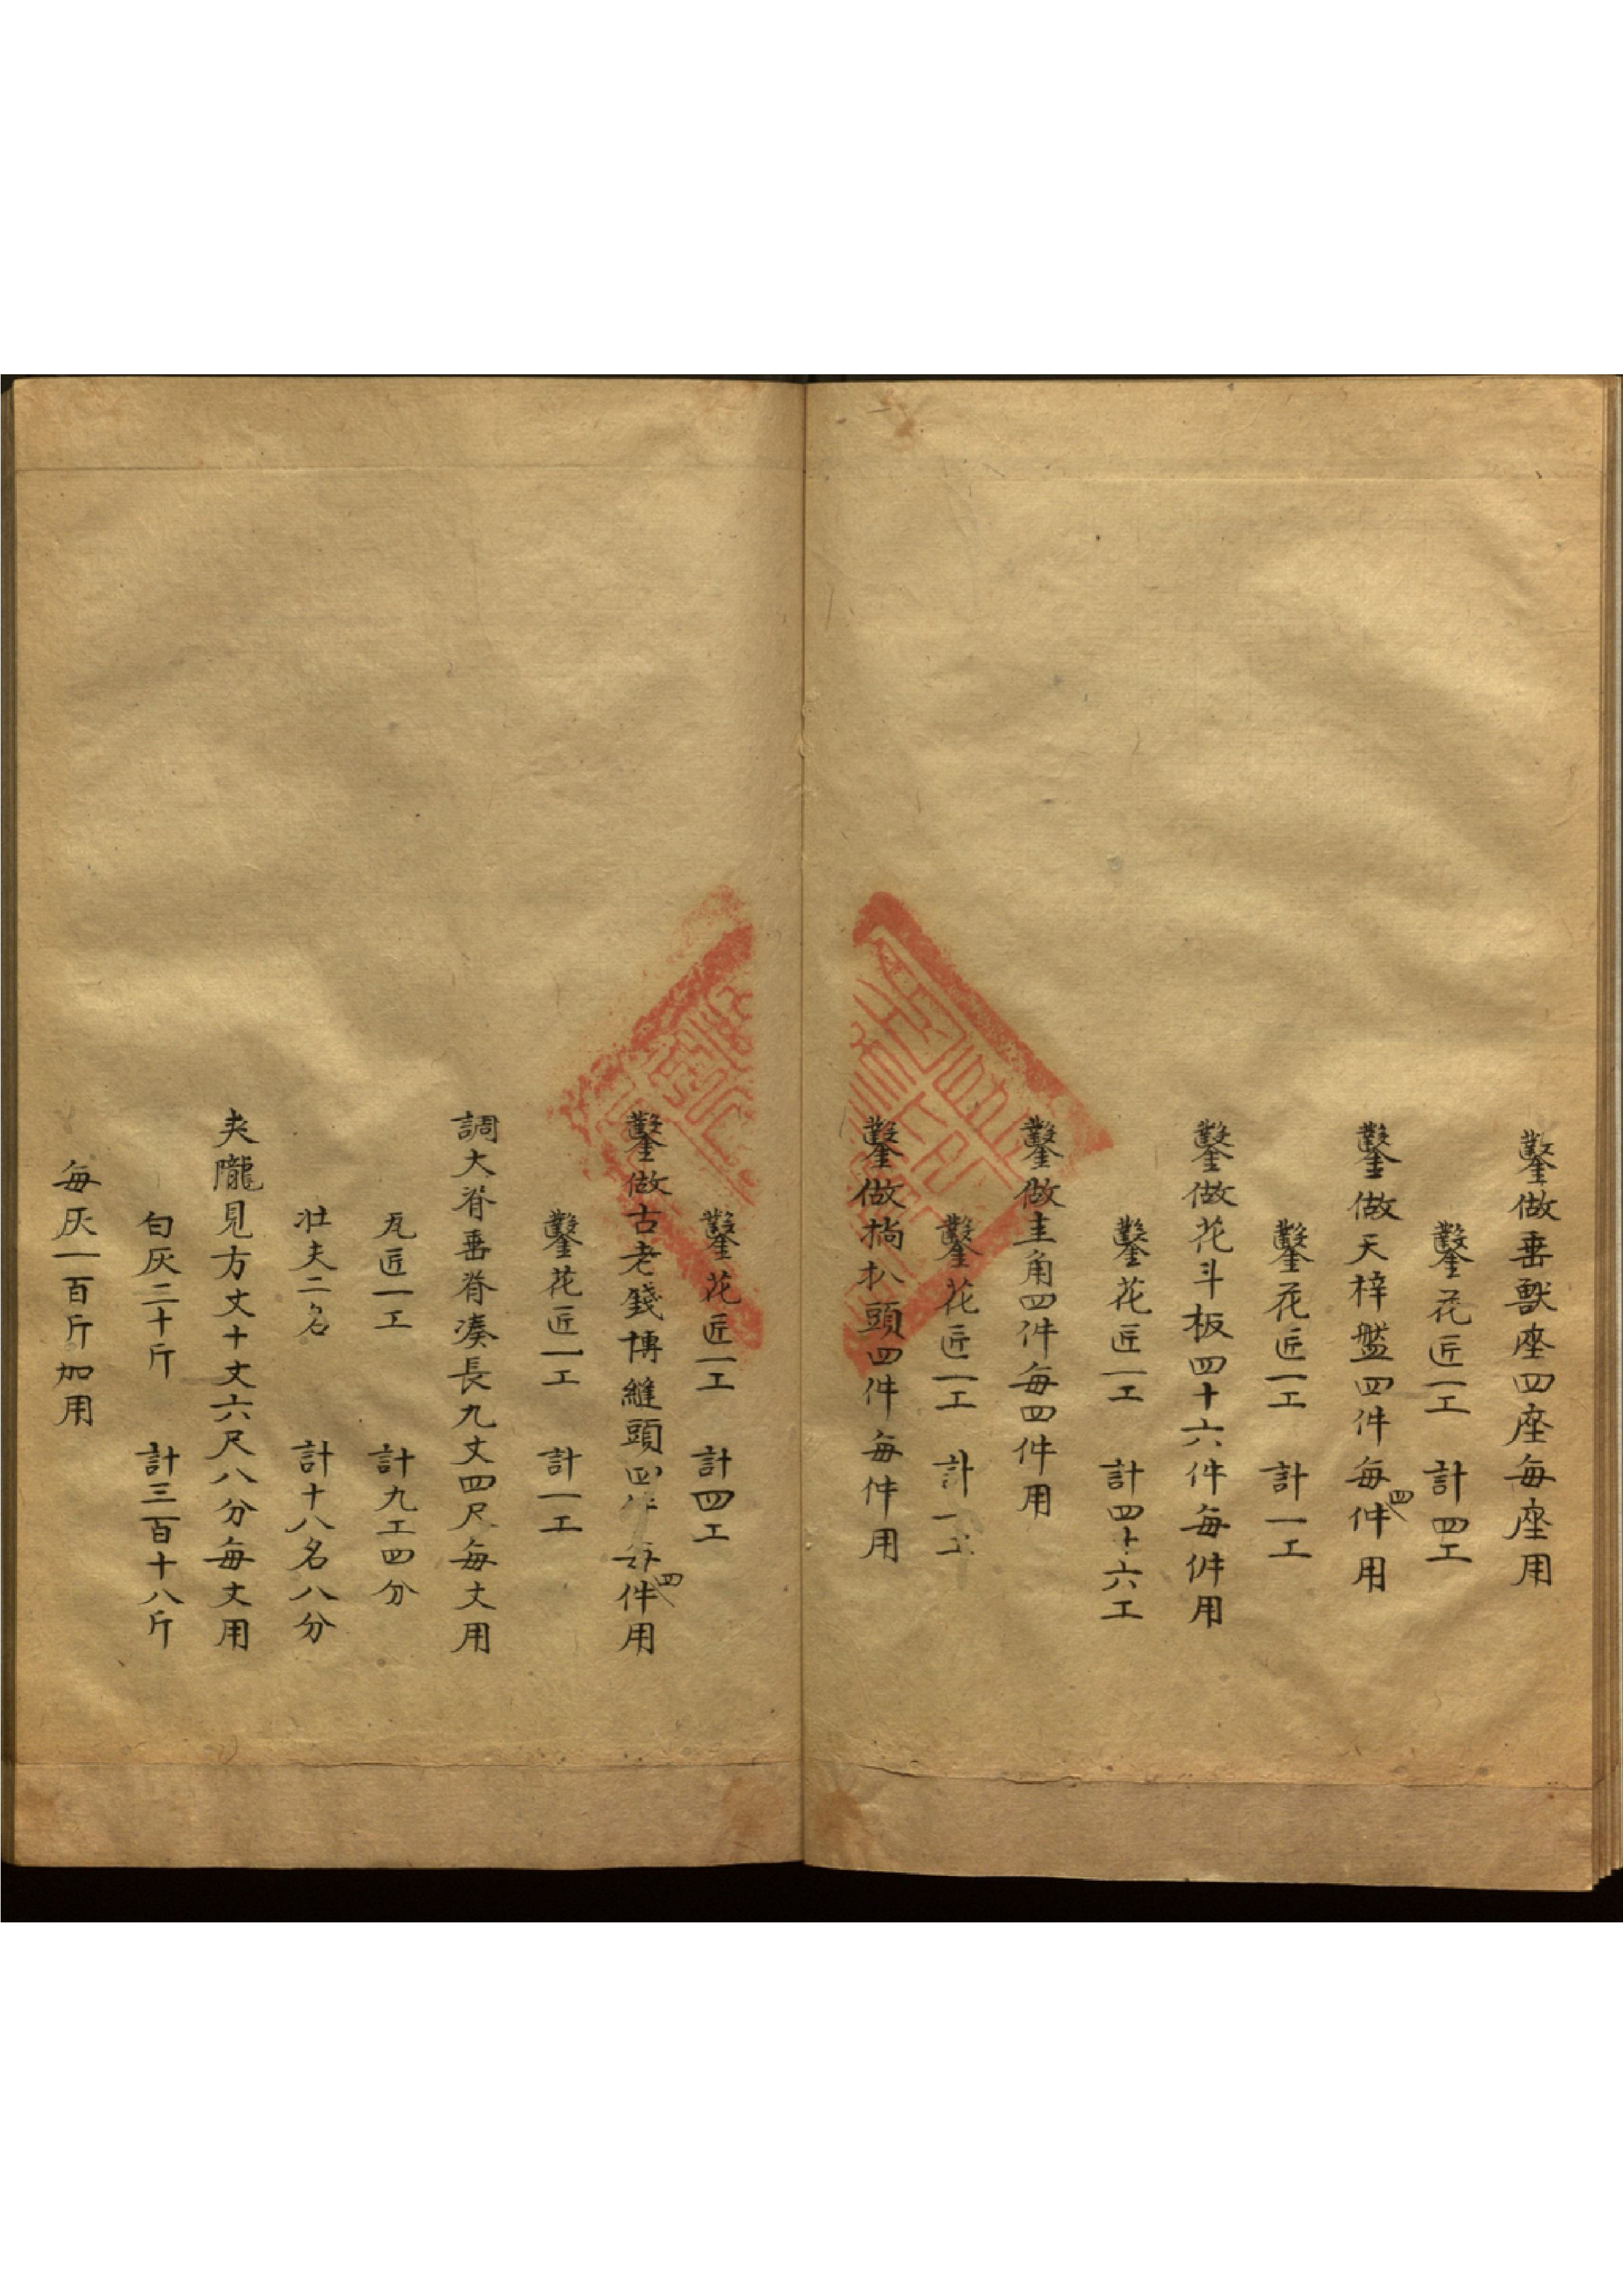 鑿做垂獸座四座每座用
鑿花匠一工　計四工
鑿做天梓盤四件每四件用
鑿花匠一工　計一工
鑿做花斗板四十六件每件用
鑿花匠一工　計四十六工
鑿做圭角四件每四件用
鑿花匠一工　計一工
鑿做掏扒頭四件每件用
鑿花匠一工　計四工
鑿做古老錢博縫頭四件每四件用
鑿花匠一工　計一工
調大脊垂脊湊長九丈四尺每丈用
瓦匠一工　計九工四分
壮夫二名　計十八名八分
夾隴見方丈十丈六尺八分每丈用
白灰三十斤　計三百十八斤
每灰一百斤加用